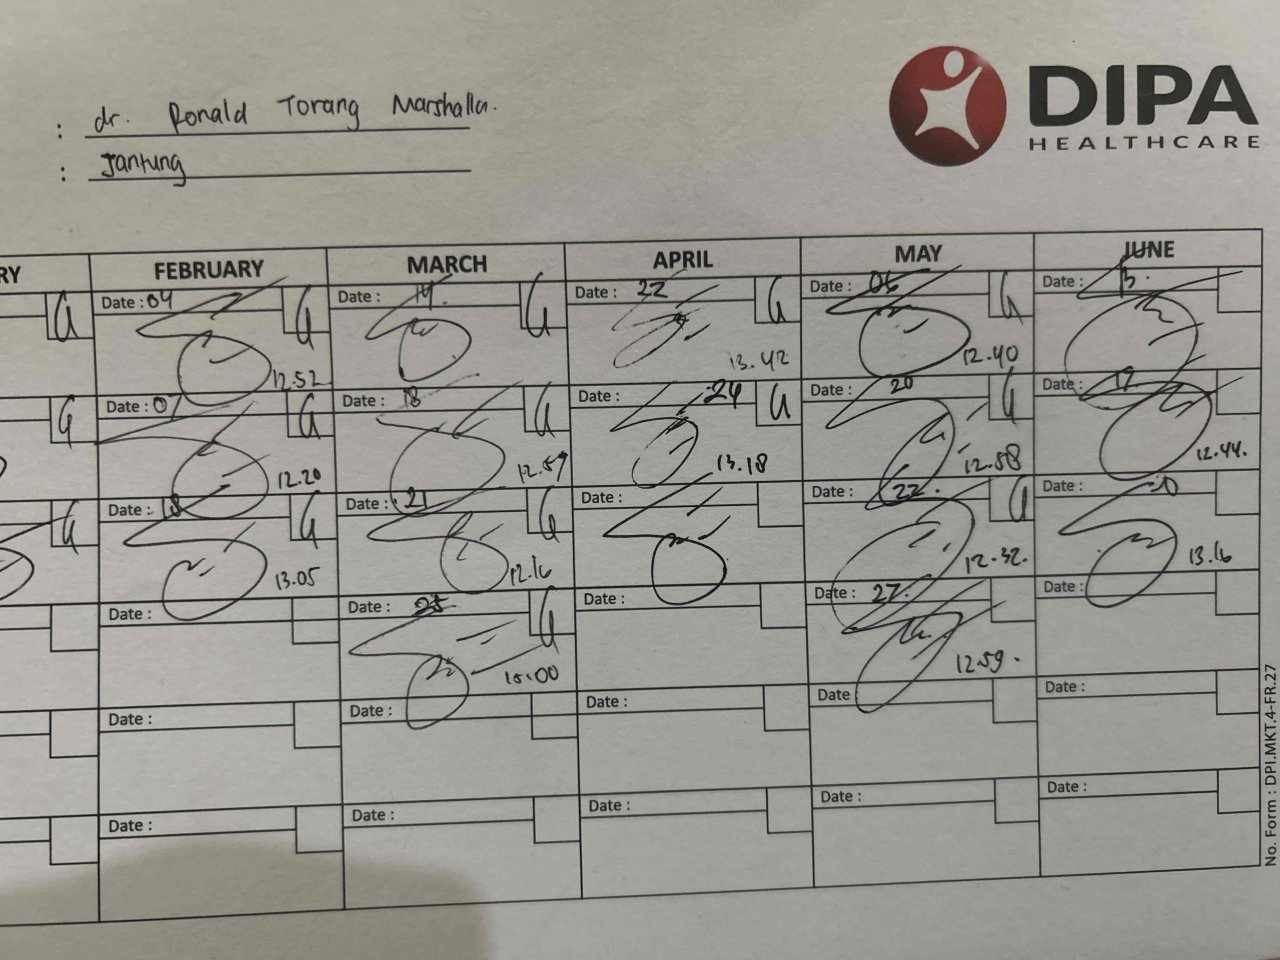 : dr. Ronald Torang Marshalla.
: Jantung
DIPA
HEALTHCARE
RY FEBRUARY MARCH APRIL MAY JUNE
Date : 04 Date : 14. Date : 22 Date : 06 Date : 13.
12.52 13.42 12.40
Date : 07 Date : 18 Date : 24 Date : 20 Date : 17
12.20 12.57 13.18 12.58 12.44.
Date : 18 Date : 21 Date : Date : 22. Date :
13.05 12.16 12.32. 13.16
Date : Date : 25 Date : Date : 27. Date :
12.59.
Date : Date : Date : Date Date :
Date : Date : Date : Date : Date :
No. Form : DPI.MKT.4-FR.27